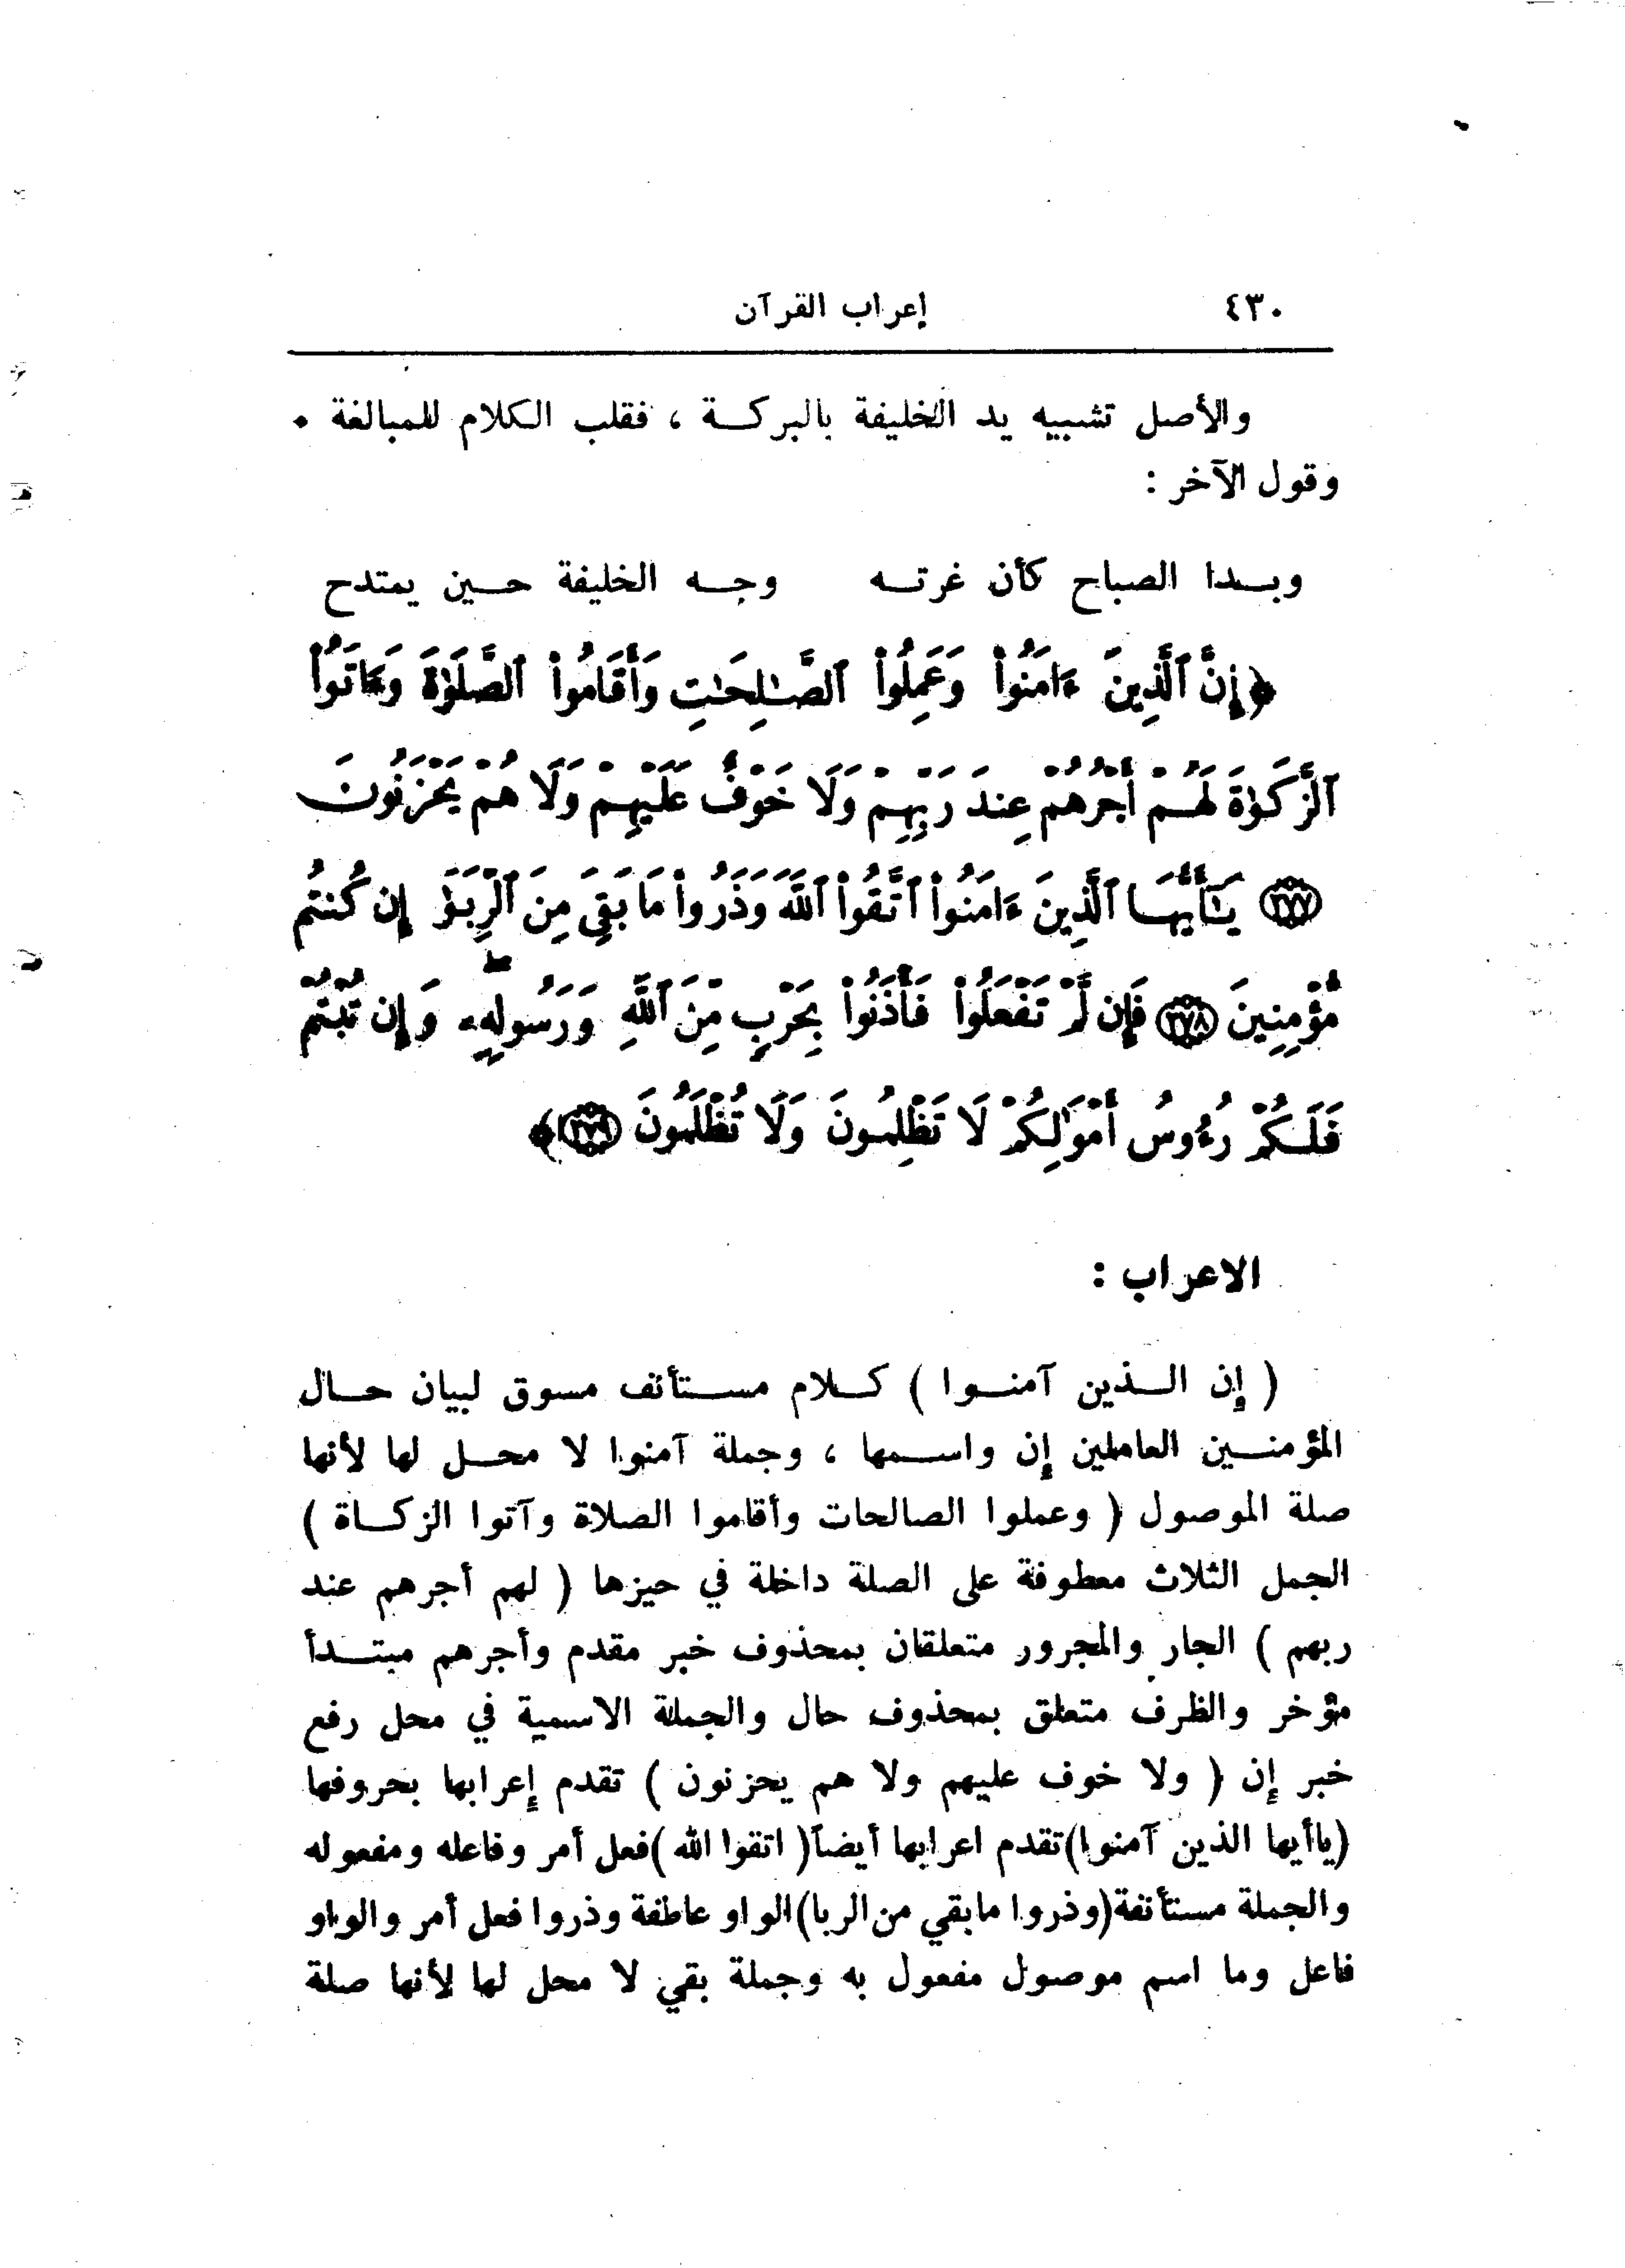 ٤٣٠ إعراب القرآن
والأصل تشبيه يد الخليفة بالبركة ، فقلب الكلام للمبالغة .
وقول الآخر :
وبدا الصباح كأن غرته وجه الخليفة حين يمتدح
﴿إِنَّ ٱلَّذِينَ ءَامَنُواْ وَعَمِلُواْ ٱلصَّـٰلِحَـٰتِ وَأَقَامُواْ ٱلصَّلَوٰةَ وَءَاتَوُاْ
ٱلزَّكَوٰةَ لَهُمْ أَجْرُهُمْ عِندَ رَبِّهِمْ وَلَا خَوْفٌ عَلَيْهِمْ وَلَا هُمْ يَحْزَنُونَ
(٢٧٧) يَـٰٓأَيُّهَا ٱلَّذِينَ ءَامَنُواْ ٱتَّقُواْ ٱللَّهَ وَذَرُواْ مَا بَقِىَ مِنَ ٱلرِّبَوٰٓاْ إِن كُنتُم
مُّؤْمِنِينَ (٢٧٨) فَإِن لَّمْ تَفْعَلُواْ فَأْذَنُواْ بِحَرْبٍ مِّنَ ٱللَّهِ وَرَسُولِهِۦ ۖ وَإِن تُبْتُمْ
فَلَكُمْ رُءُوسُ أَمْوَٰلِكُمْ لَا تَظْلِمُونَ وَلَا تُظْلَمُونَ (٢٧٩)﴾
الاعراب :
( إن الذين آمنوا ) كلام مستأنف مسوق لبيان حال
المؤمنين العاملين إن واسمها ، وجملة آمنوا لا محل لها لأنها
صلة الموصول ( وعملوا الصالحات وأقاموا الصلاة وآتوا الزكاة )
الجمل الثلاث معطوفة على الصلة داخلة في حيزها ( لهم أجرهم عند
ربهم ) الجار والمجرور متعلقان بمحذوف خبر مقدم وأجرهم مبتدأ
مؤخر والظرف متعلق بمحذوف حال والجملة الاسمية في محل رفع
خبر إن ( ولا خوف عليهم ولا هم يحزنون ) تقدم إعرابها بحروفها
(ياأيها الذين آمنوا) تقدم اعرابها أيضاً ( اتقوا الله ) فعل أمر وفاعله ومفعوله
والجملة مستأنفة (وذروا مابقي من الربا) الواو عاطفة وذروا فعل أمر والواو
فاعل وما اسم موصول مفعول به وجملة بقي لا محل لها لأنها صلة